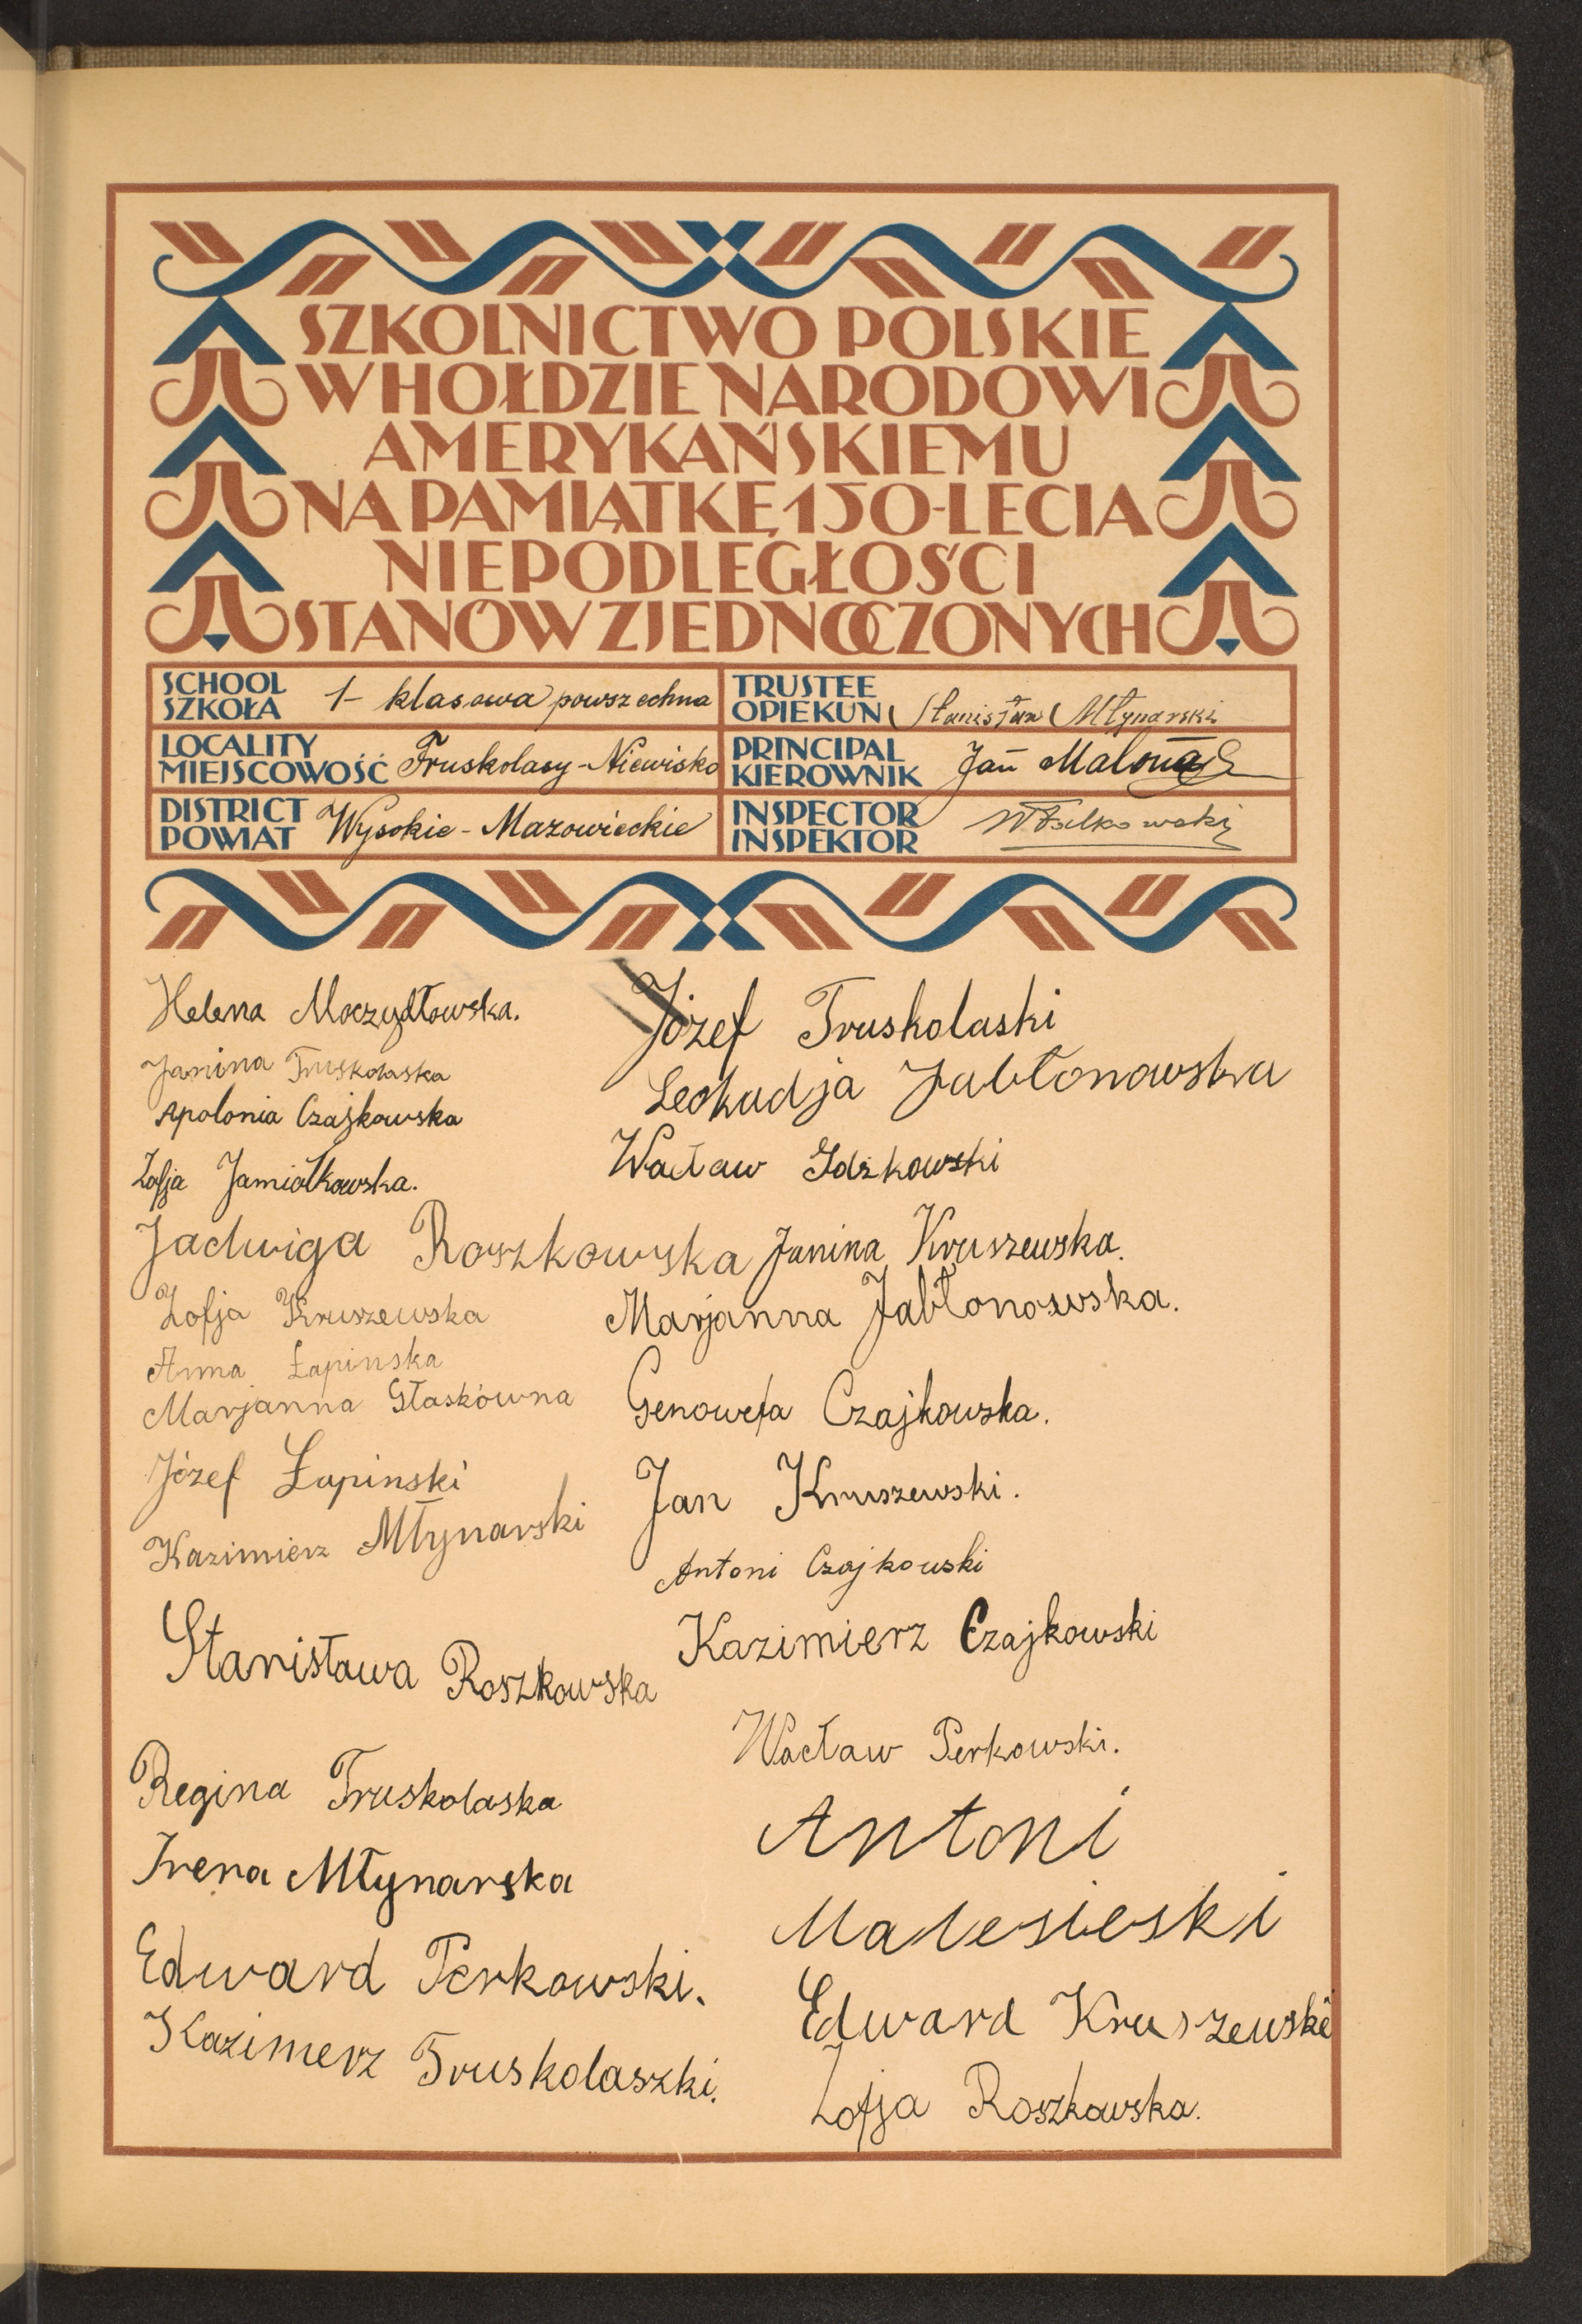 SZKOLNICTWO POLSKIE
W HOŁDZIE NARODOWI
AMERYKAŃSKIEMU
NA PAMIĄTKĘ 150-LECIA
NIEPODLEGŁOŚCI
STANÓW ZJEDNOCZONYCH
SCHOOL
SZKOŁA 1- klasowa powszechna
TRUSTEE
OPIEKUN Stanisław Młynarski
LOCALITY
MIEJSCOWOŚĆ Truskolasy-Niewisko
PRINCIPAL
KIEROWNIK Jan
DISTRICT
POWIAT Wysokie-Mazowieckie
INSPECTOR
INSPEKTOR
Helena Moczydłowska.
Janina Truskolaska
Apolonia Czajkowska
Zofja Jamiołkowska.
Jadwiga Roszkowska
Zofja Kruszewska
Anna Łapinska
Marjanna Głaskówna
Józef Łapinski
Kazimierz Młynarski
Stanisława Roszkowska
Regina Truskolaska
Irena Młynarska
Edward Perkowski.
Kazimerz Truskolaszki.
Józef Truskolaski
Leokadja Jabłonowska
Wacław Idzkowski
Janina Kruszewska.
Marjanna Jabłonowska.
Genowefa Czajkowska.
Jan Kruszewski.
Antoni Czajkowski
Kazimierz Czajkowski
Wacław Perkowski.
Antoni
Malesieski
Edward Kruszewski
Zofja Roszkowska.